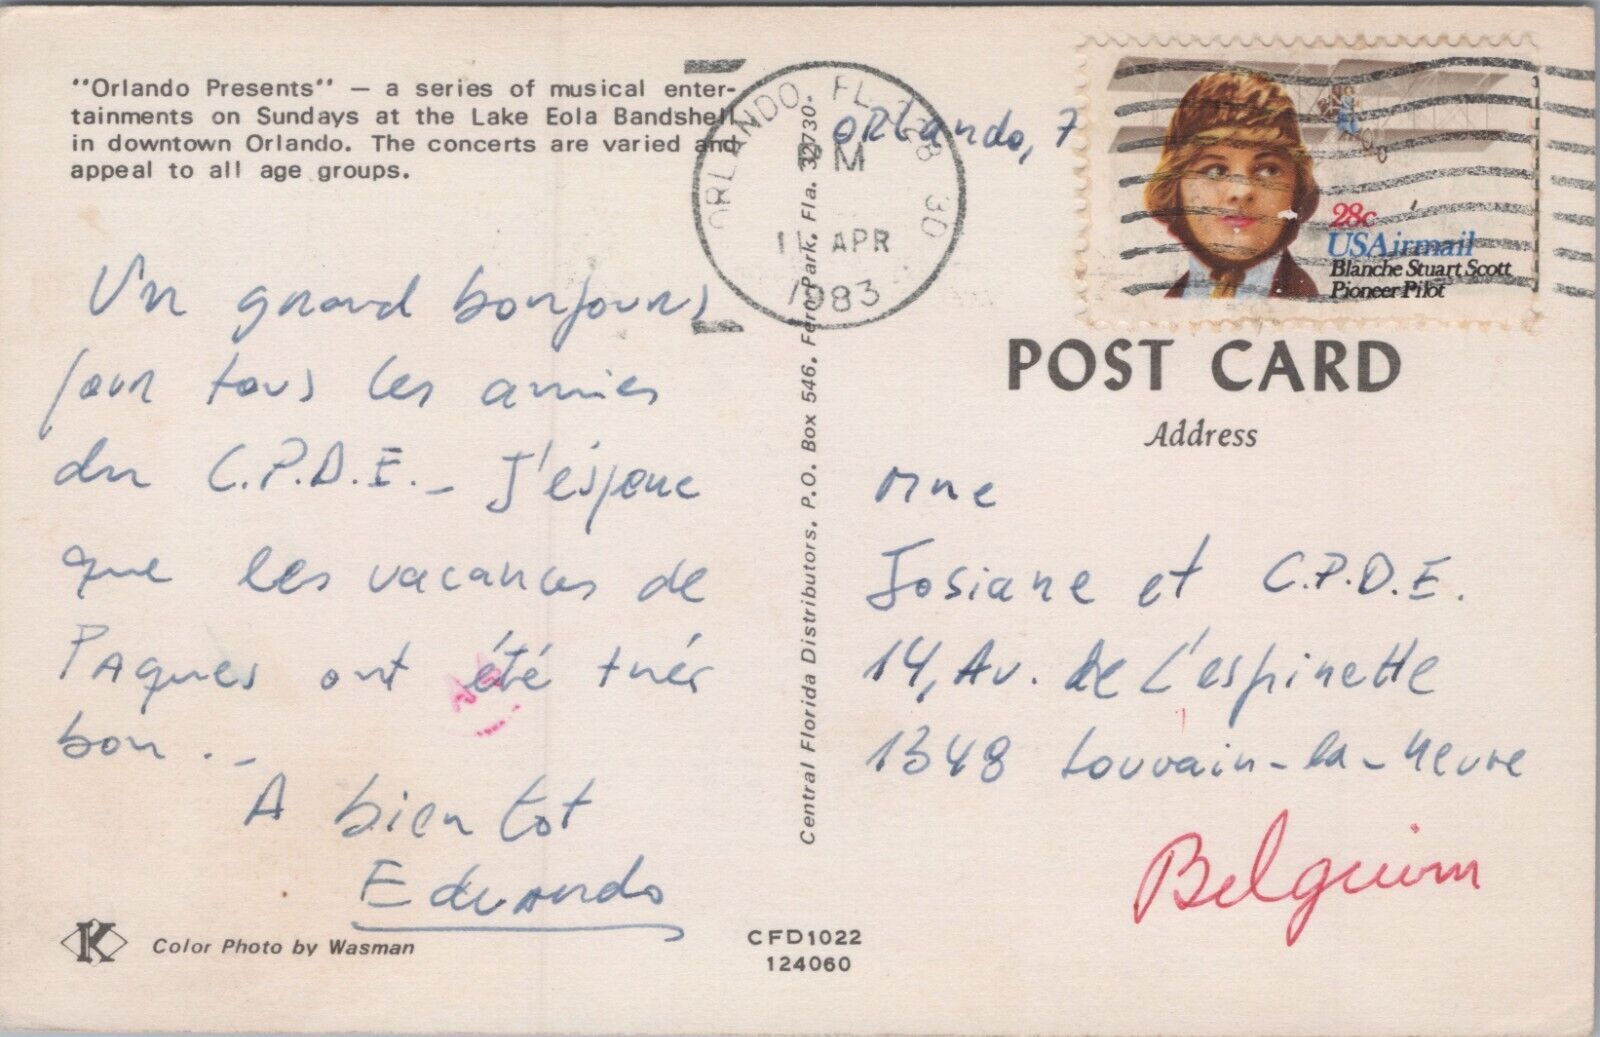 "Orlando Presents" — a series of musical enter-
tainments on Sundays at the Lake Eola Bandshell
in downtown Orlando. The concerts are varied and
appeal to all age groups.
Un grand bonjours
pour tous les amies
du C.P.D.E. _ J'éspere
que les vacances de
PAques ont été trés
bon . _
A bien tot
Eduardo
K
Color Photo by Wasman
CFD1022
124060
Central Florida Distributors. P.O. Box 546. Fern Park. Fla. 32730.
ORLANDO, FL 328 30
PM
APR
1983
ORLando, 7
28c
USAirmail
Blanche Stuart Scott
Pioneer Pilot
POST CARD
Address
Mne
Josiane et C.P.D.E.
14, Av. de L'espinette
1348 Louvain-la-Neuve
Belguim